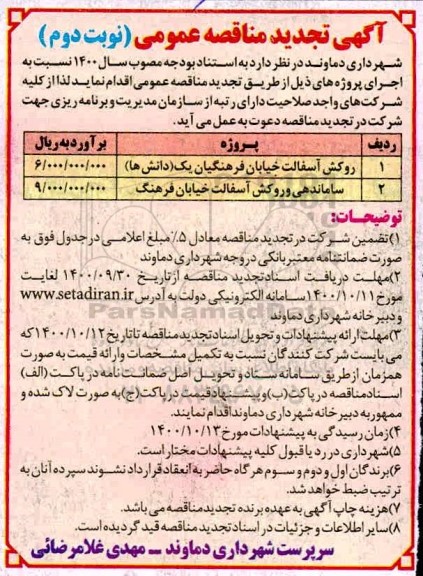 آگهی تجدید مناقصه عمومی (نوبت دوم)
شهرداری دماوند در نظر دارد به استناد بودجه مصوب سال ۱۴۰۰ نسبت به
اجرای پروژه های ذیل از طریق تجدید مناقصه عمومی اقدام نماید لذا از کلیه
شرکت‌های واجد صلاحیت دارای رتبه از سازمان مدیریت و برنامه ریزی جهت
شرکت در تجدید مناقصه دعوت به عمل می آید.
ردیف پروژه برآورد به ریال
۱ روکش آسفالت خیابان فرهنگیان یک(دانش ها) ۶/۰۰۰/۰۰۰/۰۰۰
۲ ساماندهی و روکش آسفالت خیابان فرهنگ ۹/۰۰۰/۰۰۰/۰۰۰
توضیحات:
۱)تضمین شرکت در تجدید مناقصه معادل ۵٪ مبلغ اعلامی در جدول فوق به
صورت ضمانتنامه معتبر بانکی در وجه شهرداری دماوند
۲)مهلت دریافت اسناد تجدید مناقصه از تاریخ ۱۴۰۰/۰۹/۳۰ لغایت
مورخ ۱۴۰۰/۱۰/۱۱ سامانه الکترونیکی دولت به آدرس www.setadiran.ir
و دبیرخانه شهرداری دماوند
۳)مهلت ارائه پیشنهادات و تحویل اسناد تجدید مناقصه تا تاریخ ۱۴۰۰/۱۰/۱۲ که
می بایست شرکت کنندگان نسبت به تکمیل مشخصات و ارائه قیمت به صورت
همزمان از طریق سامانه ستاد و تحویل اصل ضمانت نامه در پاکت (الف)
اسناد مناقصه در پاکت (ب) و پیشنهاد قیمت در پاکت (ج) به صورت لاک شده و
ممهور به دبیرخانه شهرداری دماوند اقدام نمایند.
۴)زمان رسیدگی به پیشنهادات مورخ ۱۴۰۰/۱۰/۱۳
۵)شهرداری در رد یا قبول کلیه پیشنهادات مختار است.
۶)برندگان اول و دوم و سوم هرگاه حاضر به انعقاد قرارداد نشوند سپرده آنان به
ترتیب ضبط خواهد شد.
۷)هزینه چاپ آگهی به عهده برنده تجدید مناقصه می باشد.
۸)سایر اطلاعات و جزئیات در اسناد تجدید مناقصه قید گردیده است.
سرپرست شهرداری دماوند – مهدی غلامرضائی